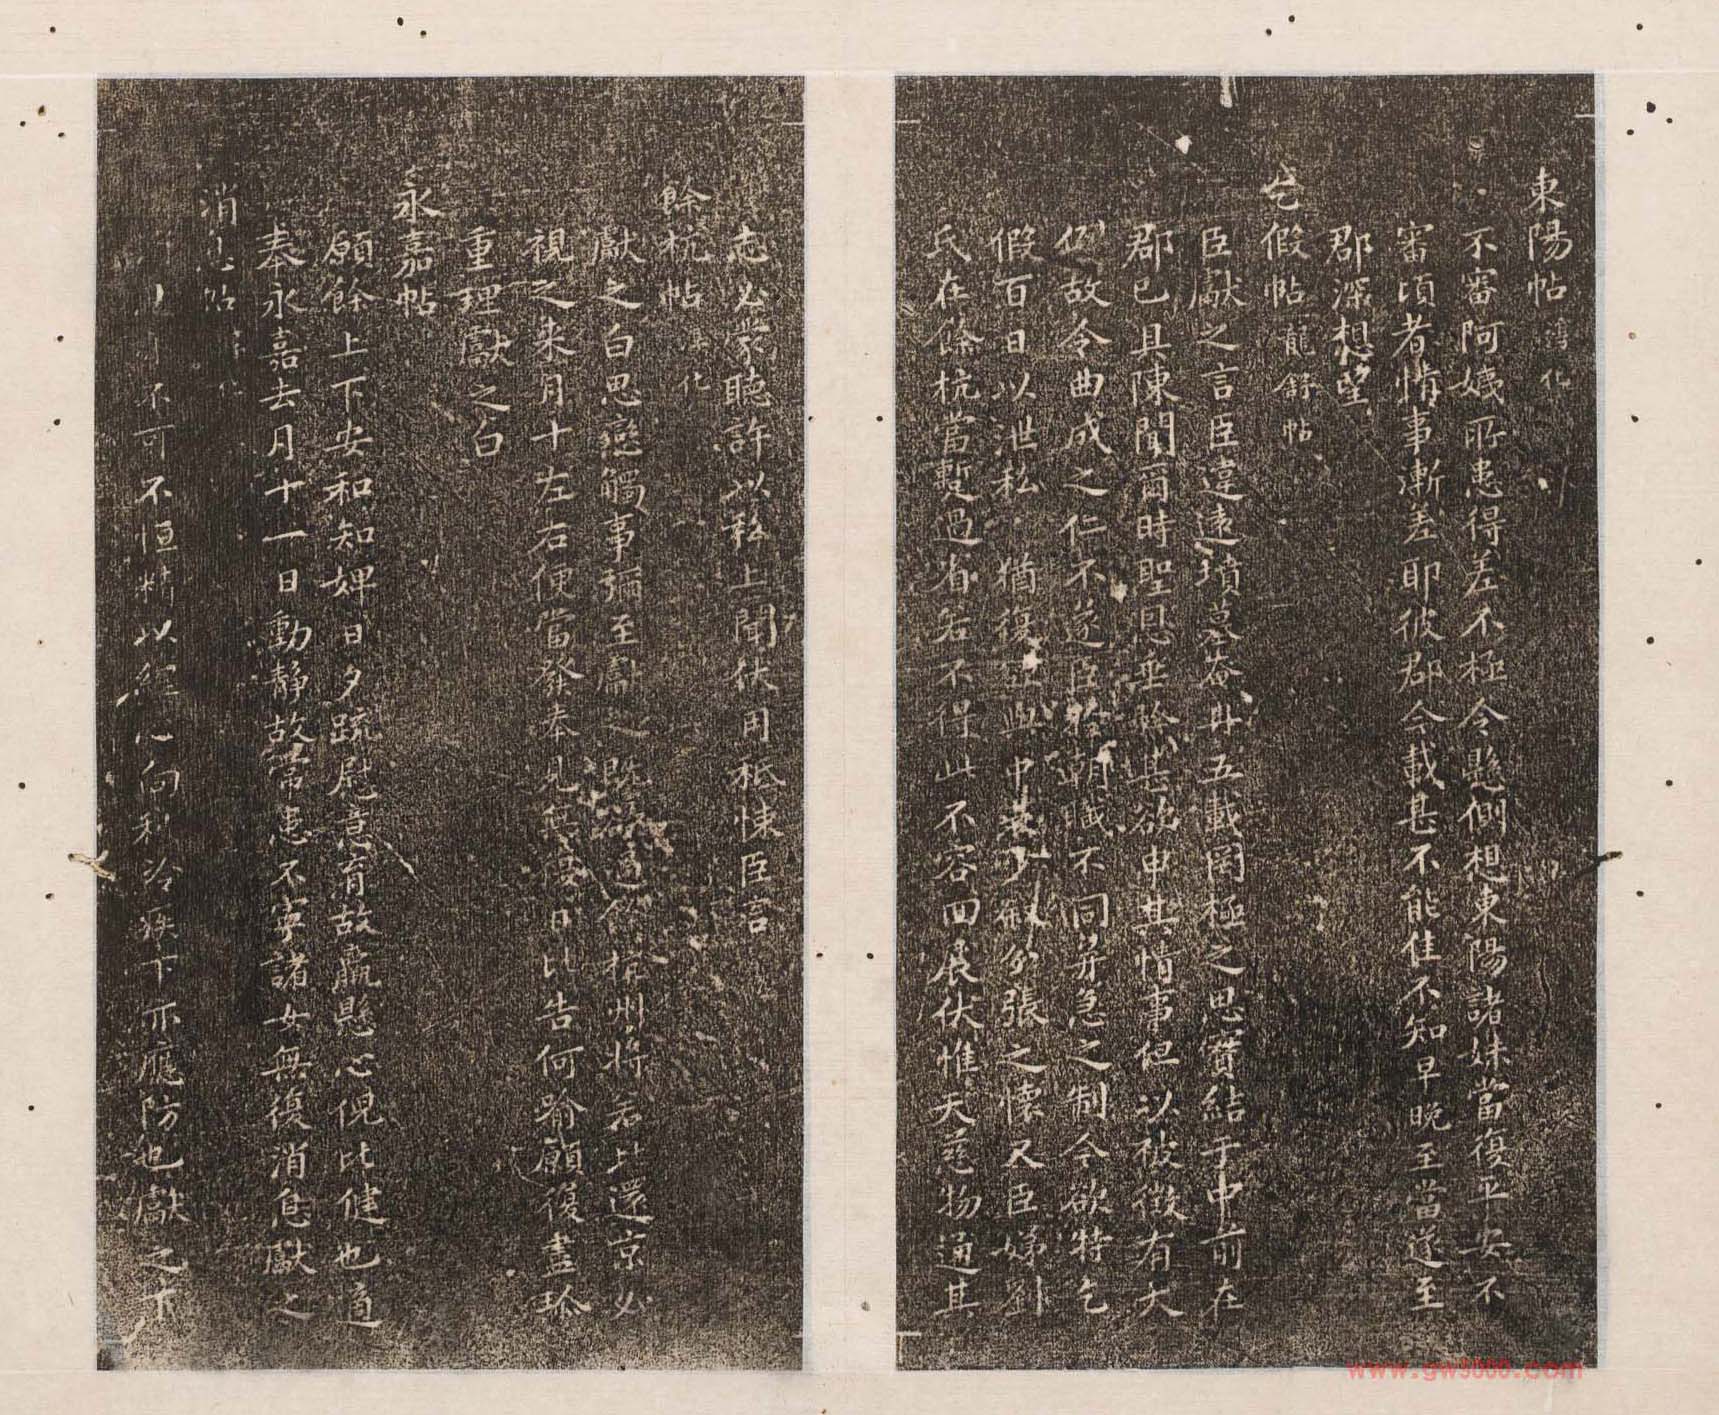 東陽帖 淳化
不審阿姨所患得差不極令懸惻想東陽諸妹當復平安不
審頃者情事漸差耶彼郡今載甚不能佳不知早晚至當遂至
郡深想望
乞假帖 龍舒帖
臣獻之言臣違遠墳墓奄冉五載罔極之思實結于中前在
郡已具陳聞爾時聖恩垂矜甚欲申其情事但以被徵有大
例故令曲成之仁不遂臣於朝職不同并急之制今欲特乞
假百日以泄私 猶復 與中 少敘分張之懷又臣娣劉
氏在餘杭當暫過省若不得此不容回展伏惟天慈物通其
志必蒙聽許以 上聞伏用祗悚臣言
餘杭帖 淳化
獻之白思戀觸事彌至獻之既欲過餘杭州將若比還京必
視之來月十左右便當發奉見無復日比告何喻願復盡珍
重理獻之白
永嘉帖
願餘上下安和知婢日夕疏慰意育故羸懸心倪比健也適
奉永嘉去月十一日動靜故常患不寧諸女無復消息獻之
消息帖 淳化
不可不恒精以經心向秋冷疾下亦應防也獻之下
www.gw3000.com